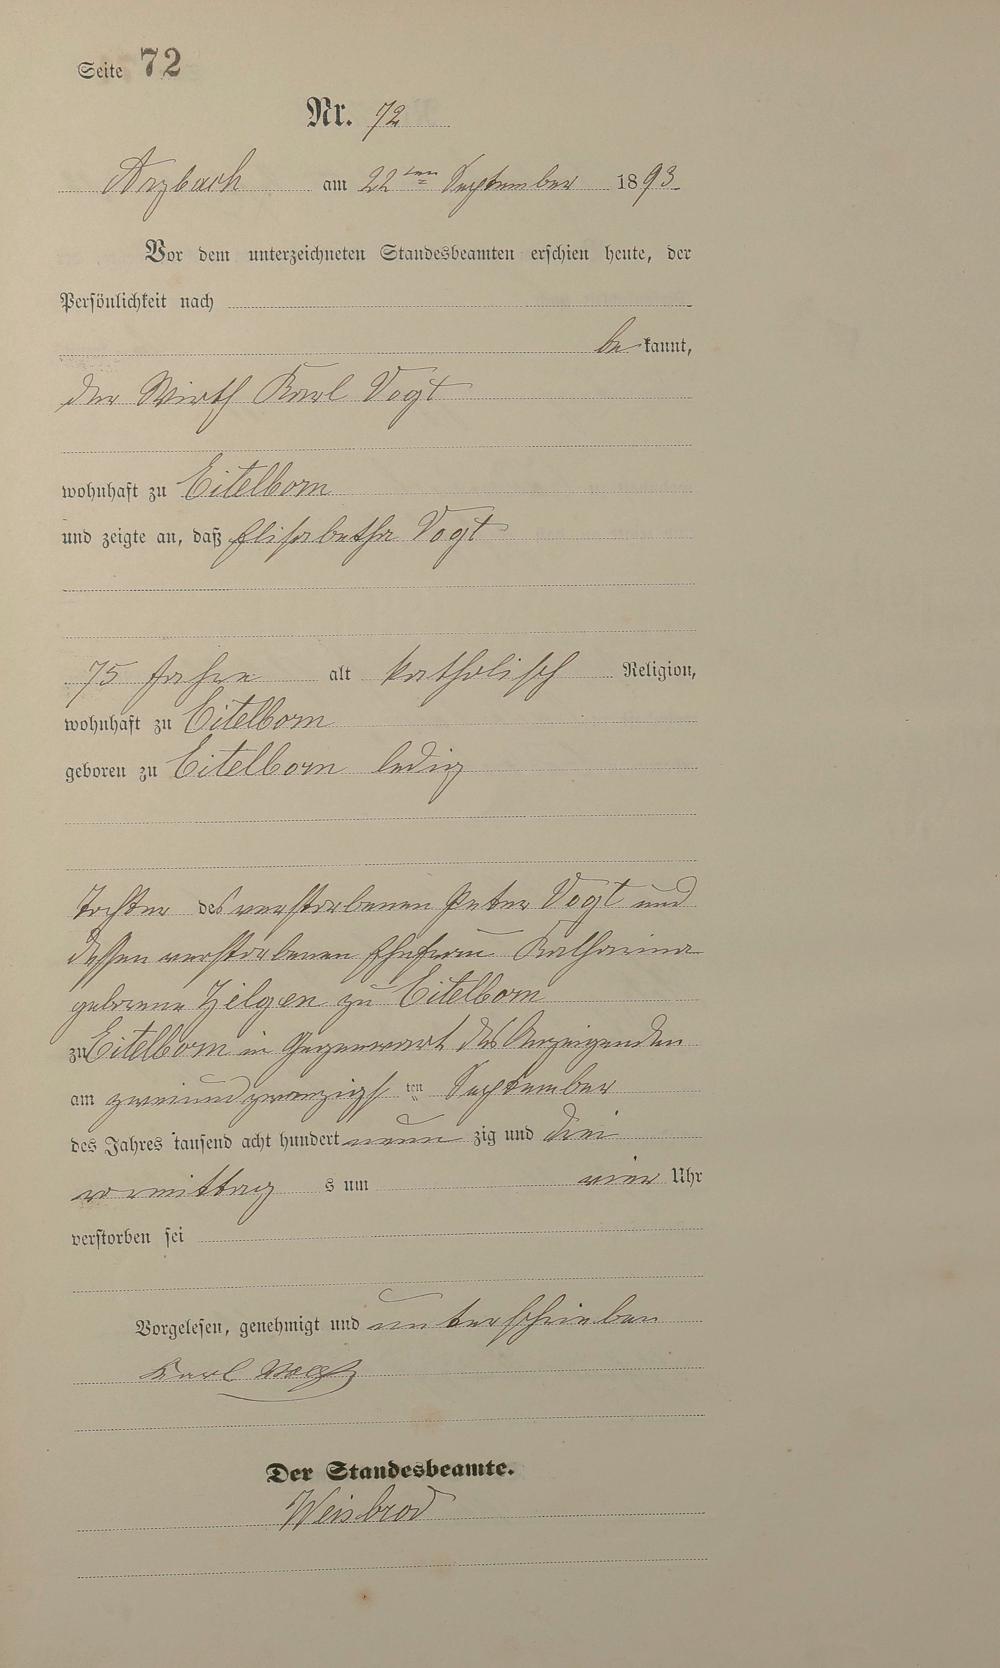 Seite 72
Nr. 72
Arzbach am 22ten September 1893
Vor dem unterzeichneten Standesbeamten erschien heute, der
Persönlichkeit nach
bekannt,
der Wirth Karl Vogt
wohnhaft zu Eitelborn
und zeigte an, daß Elisabetha Vogt
75 Jahre alt katholisch Religion,
wohnhaft zu Eitelborn
geboren zu Eitelborn ledig
Tochter des verstorbenen Peter Vogt und
dessen verstorbenen Ehefrau Katharina
geborene Zilgen zu Eitelborn
zu Eitelborn in Gegenwart des Anzeigenden
am zweiundzwanzigsten September
des Jahres tausend acht hundert neunzig und drei
vormittags um vier Uhr
verstorben sei
Vorgelesen, genehmigt und unterschrieben
Karl Vogt
Der Standesbeamte.
Weisbrod